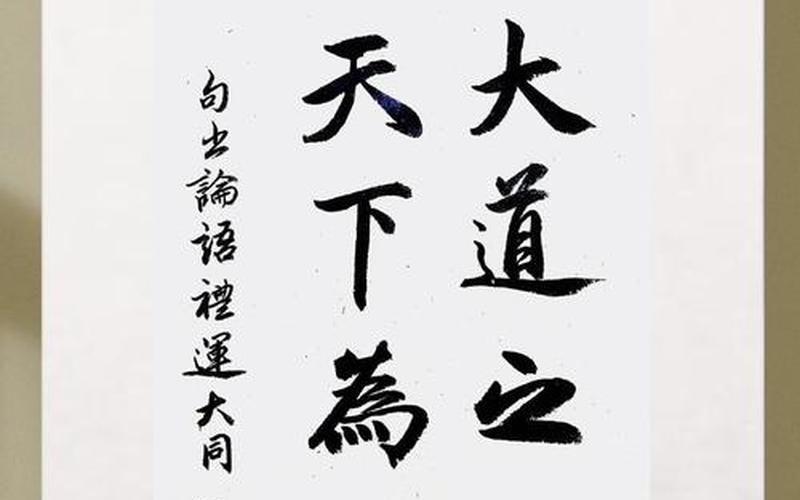 大道之
天下為
句出論語禮運大同